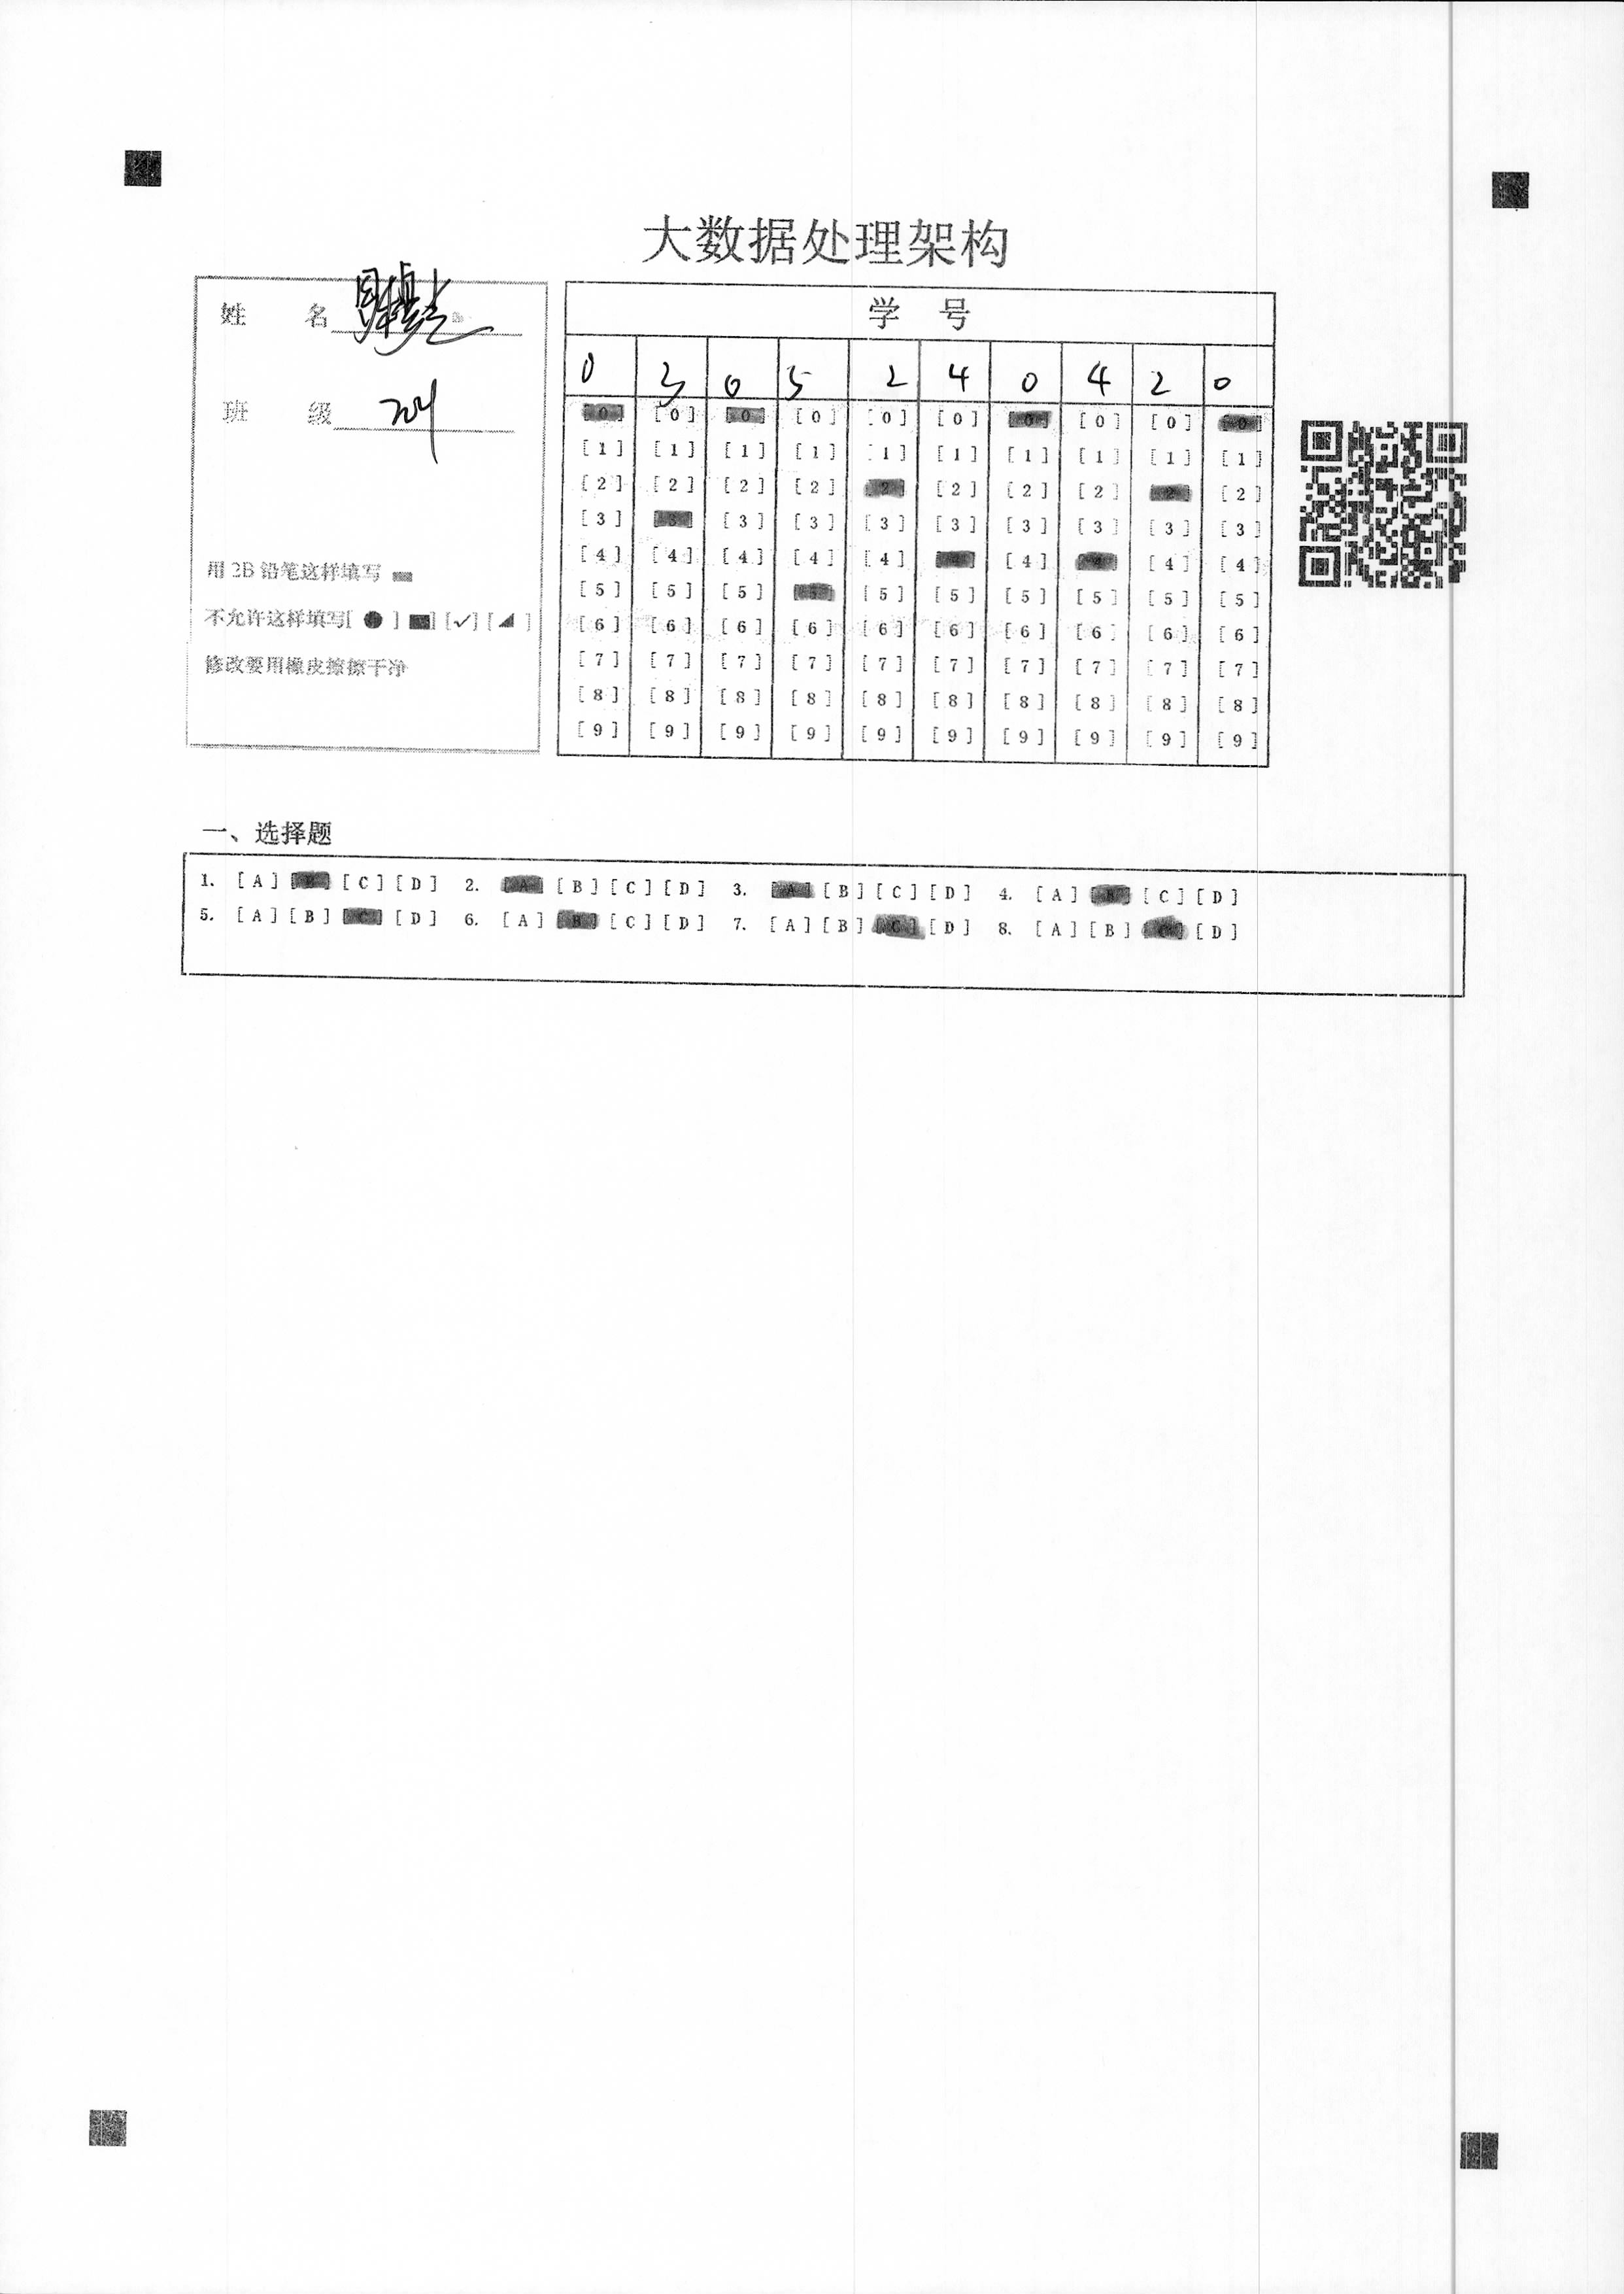 大数据处理架构
姓 名
班 级
用 2B 铅笔这样填写
不允许这样填写[ ● ] [ ■ ] [✓] [ ◢ ]
修改要用橡皮擦擦干净
学 号
0 3 0 5 2 4 0 4 2 0
[0] [0] [0] [0] [0] [0] [0] [0] [0] [0]
[1] [1] [1] [1] [1] [1] [1] [1] [1] [1]
[2] [2] [2] [2] [2] [2] [2] [2] [2] [2]
[3] [3] [3] [3] [3] [3] [3] [3] [3] [3]
[4] [4] [4] [4] [4] [4] [4] [4] [4] [4]
[5] [5] [5] [5] [5] [5] [5] [5] [5] [5]
[6] [6] [6] [6] [6] [6] [6] [6] [6] [6]
[7] [7] [7] [7] [7] [7] [7] [7] [7] [7]
[8] [8] [8] [8] [8] [8] [8] [8] [8] [8]
[9] [9] [9] [9] [9] [9] [9] [9] [9] [9]
一、选择题
1. [A] [B] [C] [D] 2. [A] [B] [C] [D] 3. [A] [B] [C] [D] 4. [A] [B] [C] [D]
5. [A] [B] [C] [D] 6. [A] [B] [C] [D] 7. [A] [B] [C] [D] 8. [A] [B] [C] [D]